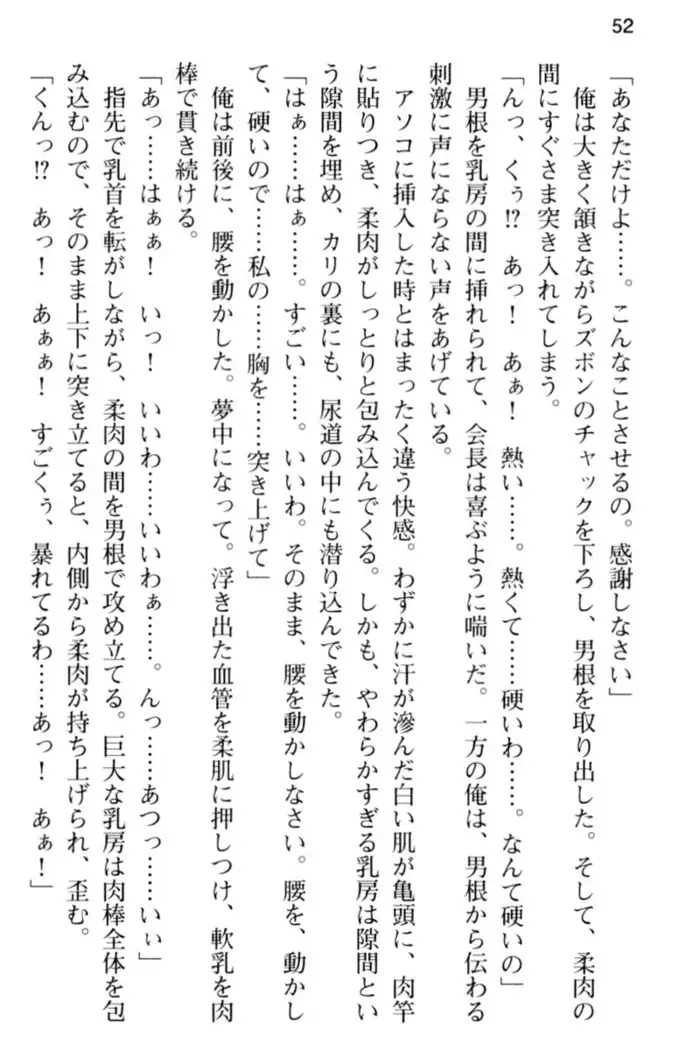 52
「あなただけよ……。こんなことさせるの。感謝しなさい」
俺は大きく頷きながらズボンのチャックを下ろし、男根を取り出した。そして、柔肉の
間にすぐさま突き入れてしまう。
「んっ、くぅ!?　あっ！　あぁ！　熱い……。熱くて……硬いわ……。なんて硬いの」
男根を乳房の間に挿れられて、会長は喜ぶように喘いだ。一方の俺は、男根から伝わる
刺激に声にならない声をあげている。
アソコに挿入した時とはまったく違う快感。わずかに汗が滲んだ白い肌が亀頭に、肉竿
に貼りつき、柔肉がしっとりと包み込んでくる。しかも、やわらかすぎる乳房は隙間とい
う隙間を埋め、カリの裏にも、尿道の中にも潜り込んできた。
「はぁ……はぁ……。すごい……。いいわ。そのまま、腰を動かしなさい。腰を、動かし
て、硬いので……私の……胸を……突き上げて」
俺は前後に、腰を動かした。夢中になって。浮き出た血管を柔肌に押しつけ、軟乳を肉
棒で貫き続ける。
「あっ……はぁぁ！　いっ！　いいわ……いいわぁ……。んっ……あつっ……いぃ」
指先で乳首を転がしながら、柔肉の間を男根で攻め立てる。巨大な乳房は肉棒全体を包
み込むので、そのまま上下に突き立てると、内側から柔肉が持ち上げられ、歪む。
「くんっ!?　あっ！　あぁぁ！　すごくぅ、暴れてるわ……あっ！　あぁ！」